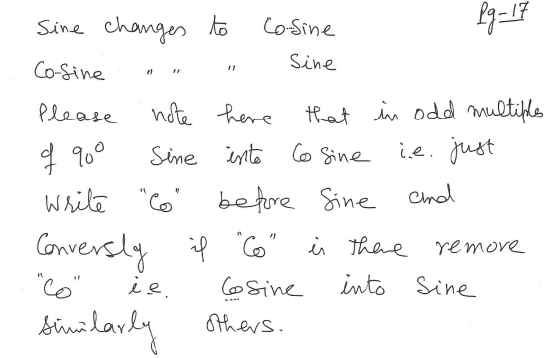 Pg-17
Sine changes to Co-Sine
Co-Sine " " " Sine
Please note here that in odd multiples
of 90° Sine into CoSine i.e. just
Write "Co" before Sine and
Conversly if "Co" is there remove
"Co" i.e. CoSine into Sine
Similarly Others.